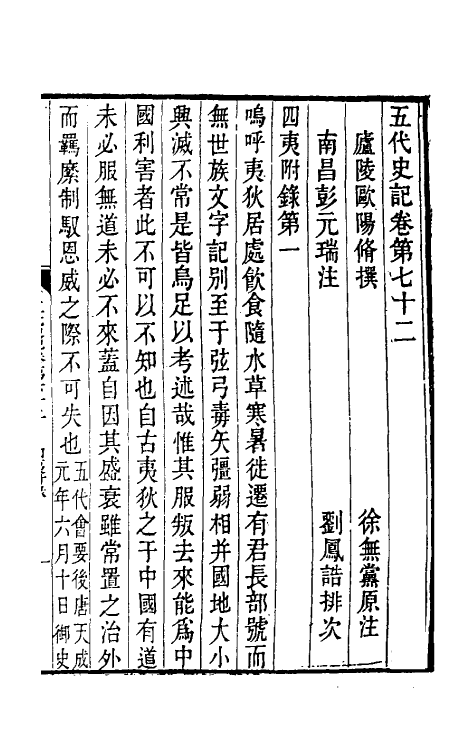 五代史記卷第七十二
廬陵歐陽脩撰　徐無黨原注
南昌彭元瑞注　劉鳳誥排次
四夷附錄第一
嗚呼夷狄居處飲食隨水草寒暑徙遷有君長部號而
無世族文字記別至于弦弓毒矢彊弱相并國地大小
興滅不常是皆烏足以考述哉惟其服叛去來能爲中
國利害者此不可以不知也自古夷狄之于中國有道
未必服無道未必不來蓋自因其盛衰雖常置之治外
而羈縻制馭恩威之際不可失也五代會要後唐天成
元年六月十日御史